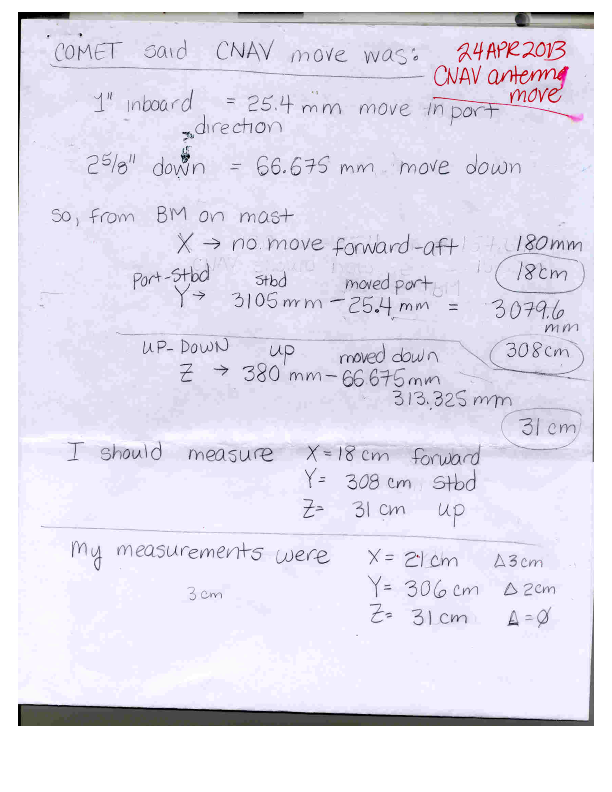 COMET said CNAV move was:
24APR2013
CNAV antenna
move
1" inboard = 25.4 mm move in port
direction
is
2 5/8" down = 66.675 mm move down
so, from BM on mast
X → no move forward-aft 180mm
18cm
Port-Stbd Stbd moved port
Y → 3105 mm - 25.4 mm = 3079.6
mm
UP-DOWN up moved down
308cm
Z → 380 mm - 66.675mm
313.325 mm
31 cm
I should measure X = 18 cm forward
Y = 308 cm Stbd
Z = 31 cm up
My measurements were X = 21 cm Δ3cm
3 cm
Y = 306 cm Δ 2cm
Z = 31 cm Δ = Ø